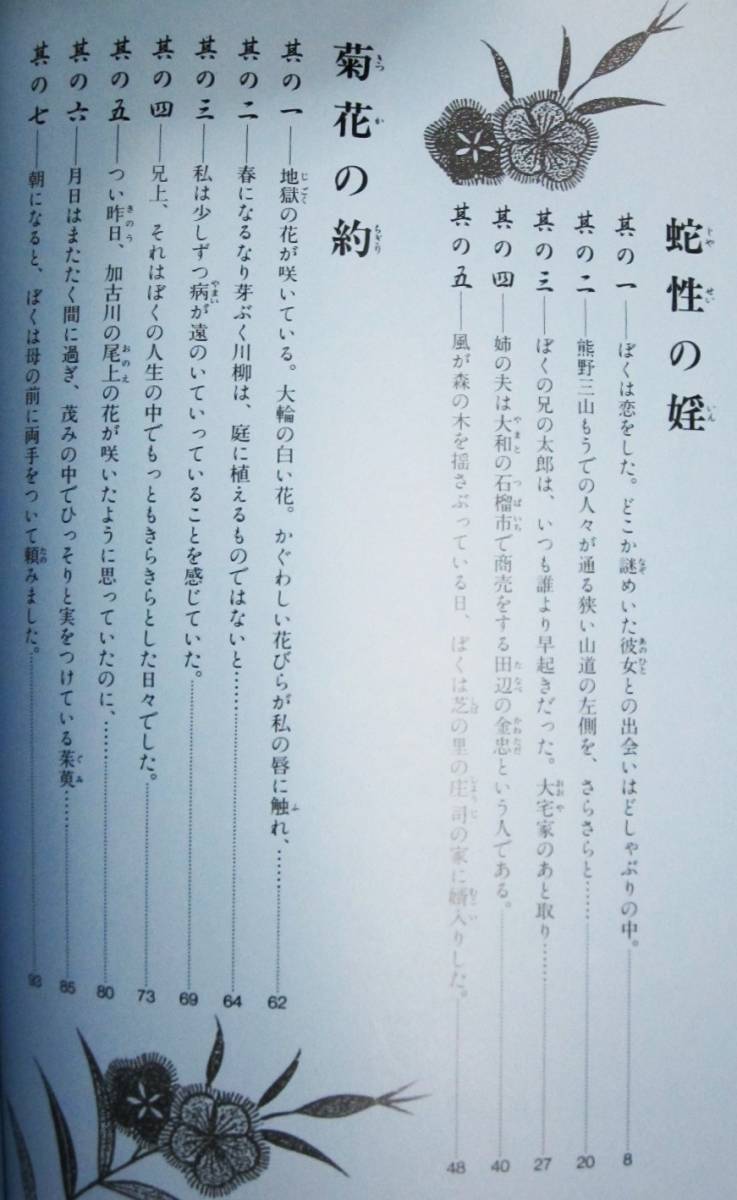 蛇性の婬
じやせいいん
其の一――ぼくは恋をした。どこか謎めいた彼女との出会いはどしゃぶりの中。 8
なぞ あのひと
其の二――熊野三山もうでの人々が通る狭い山道の左側を、さらさらと…… 20
其の三――ぼくの兄の太郎は、いつも誰より早起きだった。大宅家のあと取り…… 27
おおや
其の四――姉の夫は大和の石榴市で商売をする田辺の金忠という人である。 40
やまと つばいち たなべ かねただ
其の五――風が森の木を揺さぶっている日、ぼくは芝の里の庄司の家に婿入りした。 48
しば しょうじ むこい
菊花の約
きつか ちぎり
其の一――地獄の花が咲いている。大輪の白い花。かぐわしい花びらが私の唇に触れ、…… 62
じごく ふ
其の二――春になるなり芽ぶく川柳は、庭に植えるものではないと…… 64
其の三――私は少しずつ病が遠のいていっていることを感じていた。 69
やまい
其の四――兄上、それはぼくの人生の中でもっともきらきらとした日々でした。 73
其の五――つい昨日、加古川の尾上の花が咲いたように思っていたのに、…… 80
きのう おのえ
其の六――月日はまたたく間に過ぎ、茂みの中でひっそりと実をつけている茱萸…… 85
ぐみ
其の七――朝になると、ぼくは母の前に両手をついて頼みました。 93
たの